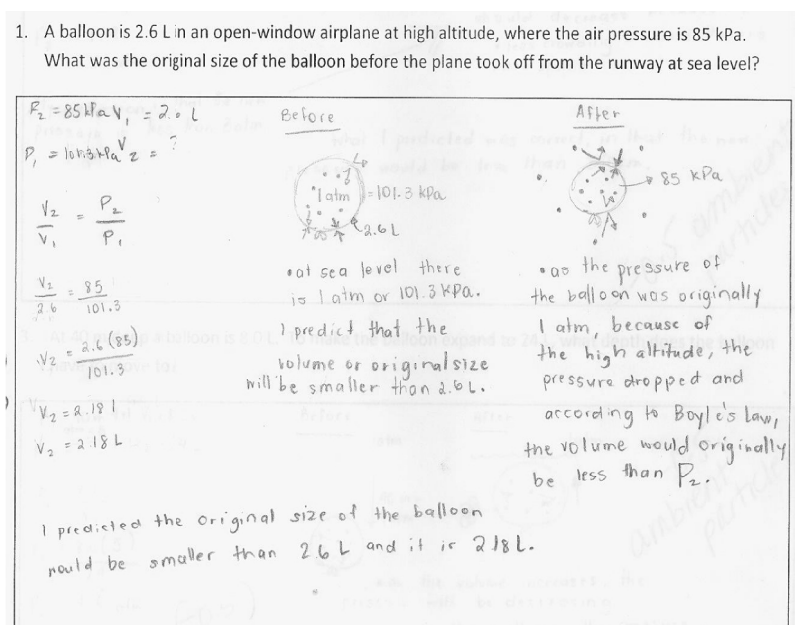 1. A balloon is 2.6 L in an open-window airplane at high altitude, where the air pressure is 85 kPa.
What was the original size of the balloon before the plane took off from the runway at sea level?
P₂ = 85 kPa V₁ = 2.0 L
P₁ = 101.3 kPa V₂ = ?
V₂/V₁ = P₂/P₁
V₂/2.6 = 85/101.3
V₂ = 2.6(85)/101.3
V₂ = 2.181
V₂ = 2.18 L
Before
1 atm = 101.3 kPa
2.6 L
• at sea level there
is 1 atm or 101.3 kPa.
I predict that the
volume or original size
will be smaller than 2.6 L.
After
85 kPa
• as the pressure of
the balloon was originally
1 atm, because of
the high altitude, the
pressure dropped and
according to Boyle's Law,
the volume would originally
be less than P₂.
I predicted the original size of the balloon
would be smaller than 2.6 L and it is 2.18 L.